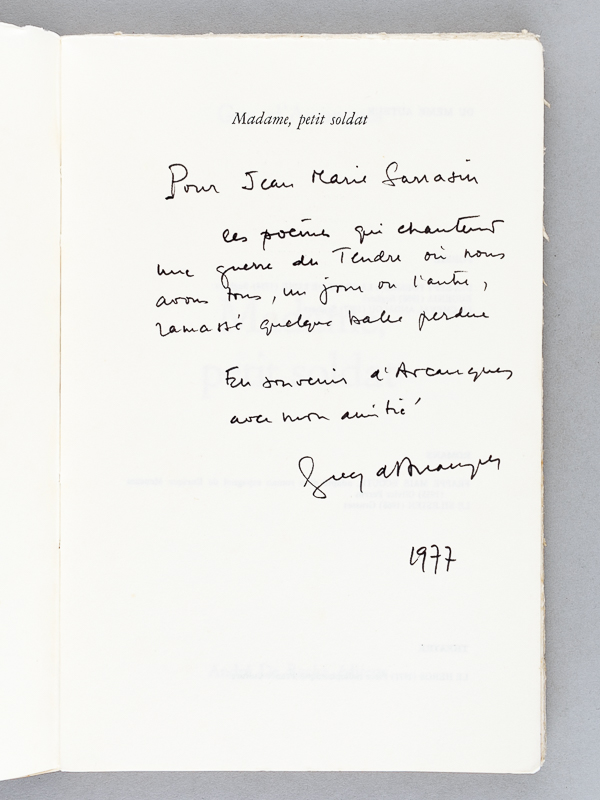 Madame, petit soldat
Pour Jean Marie Sarrasin
ces poèmes qui chantent
une guerre du Tendre où nous
avons tous, un jour ou l'autre,
ramassé quelque balle perdue
En souvenir d'Arcangues
avec mon amitié
Guy d'Arcangues
1977